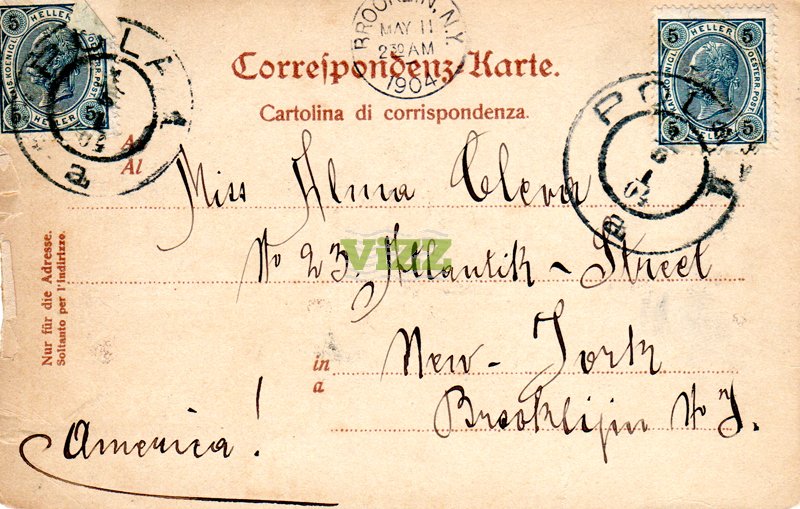 BROOKLIN, N.Y.
MAY 11
2 30 AM
1904
5 HELLER 5
5 HELLER 5
POLA
a
5 HELLER 5
5 HELLER 5
POLA
a
Correspondenz-Karte.
Cartolina di corrispondenza.
An
Al
Miss Elma
No 23. Atlantik - Street
VIZZ
in
a
New - York
Brooklijn N Y.
America!
Nur für die Adresse.
Soltanto per l'indirizzo.